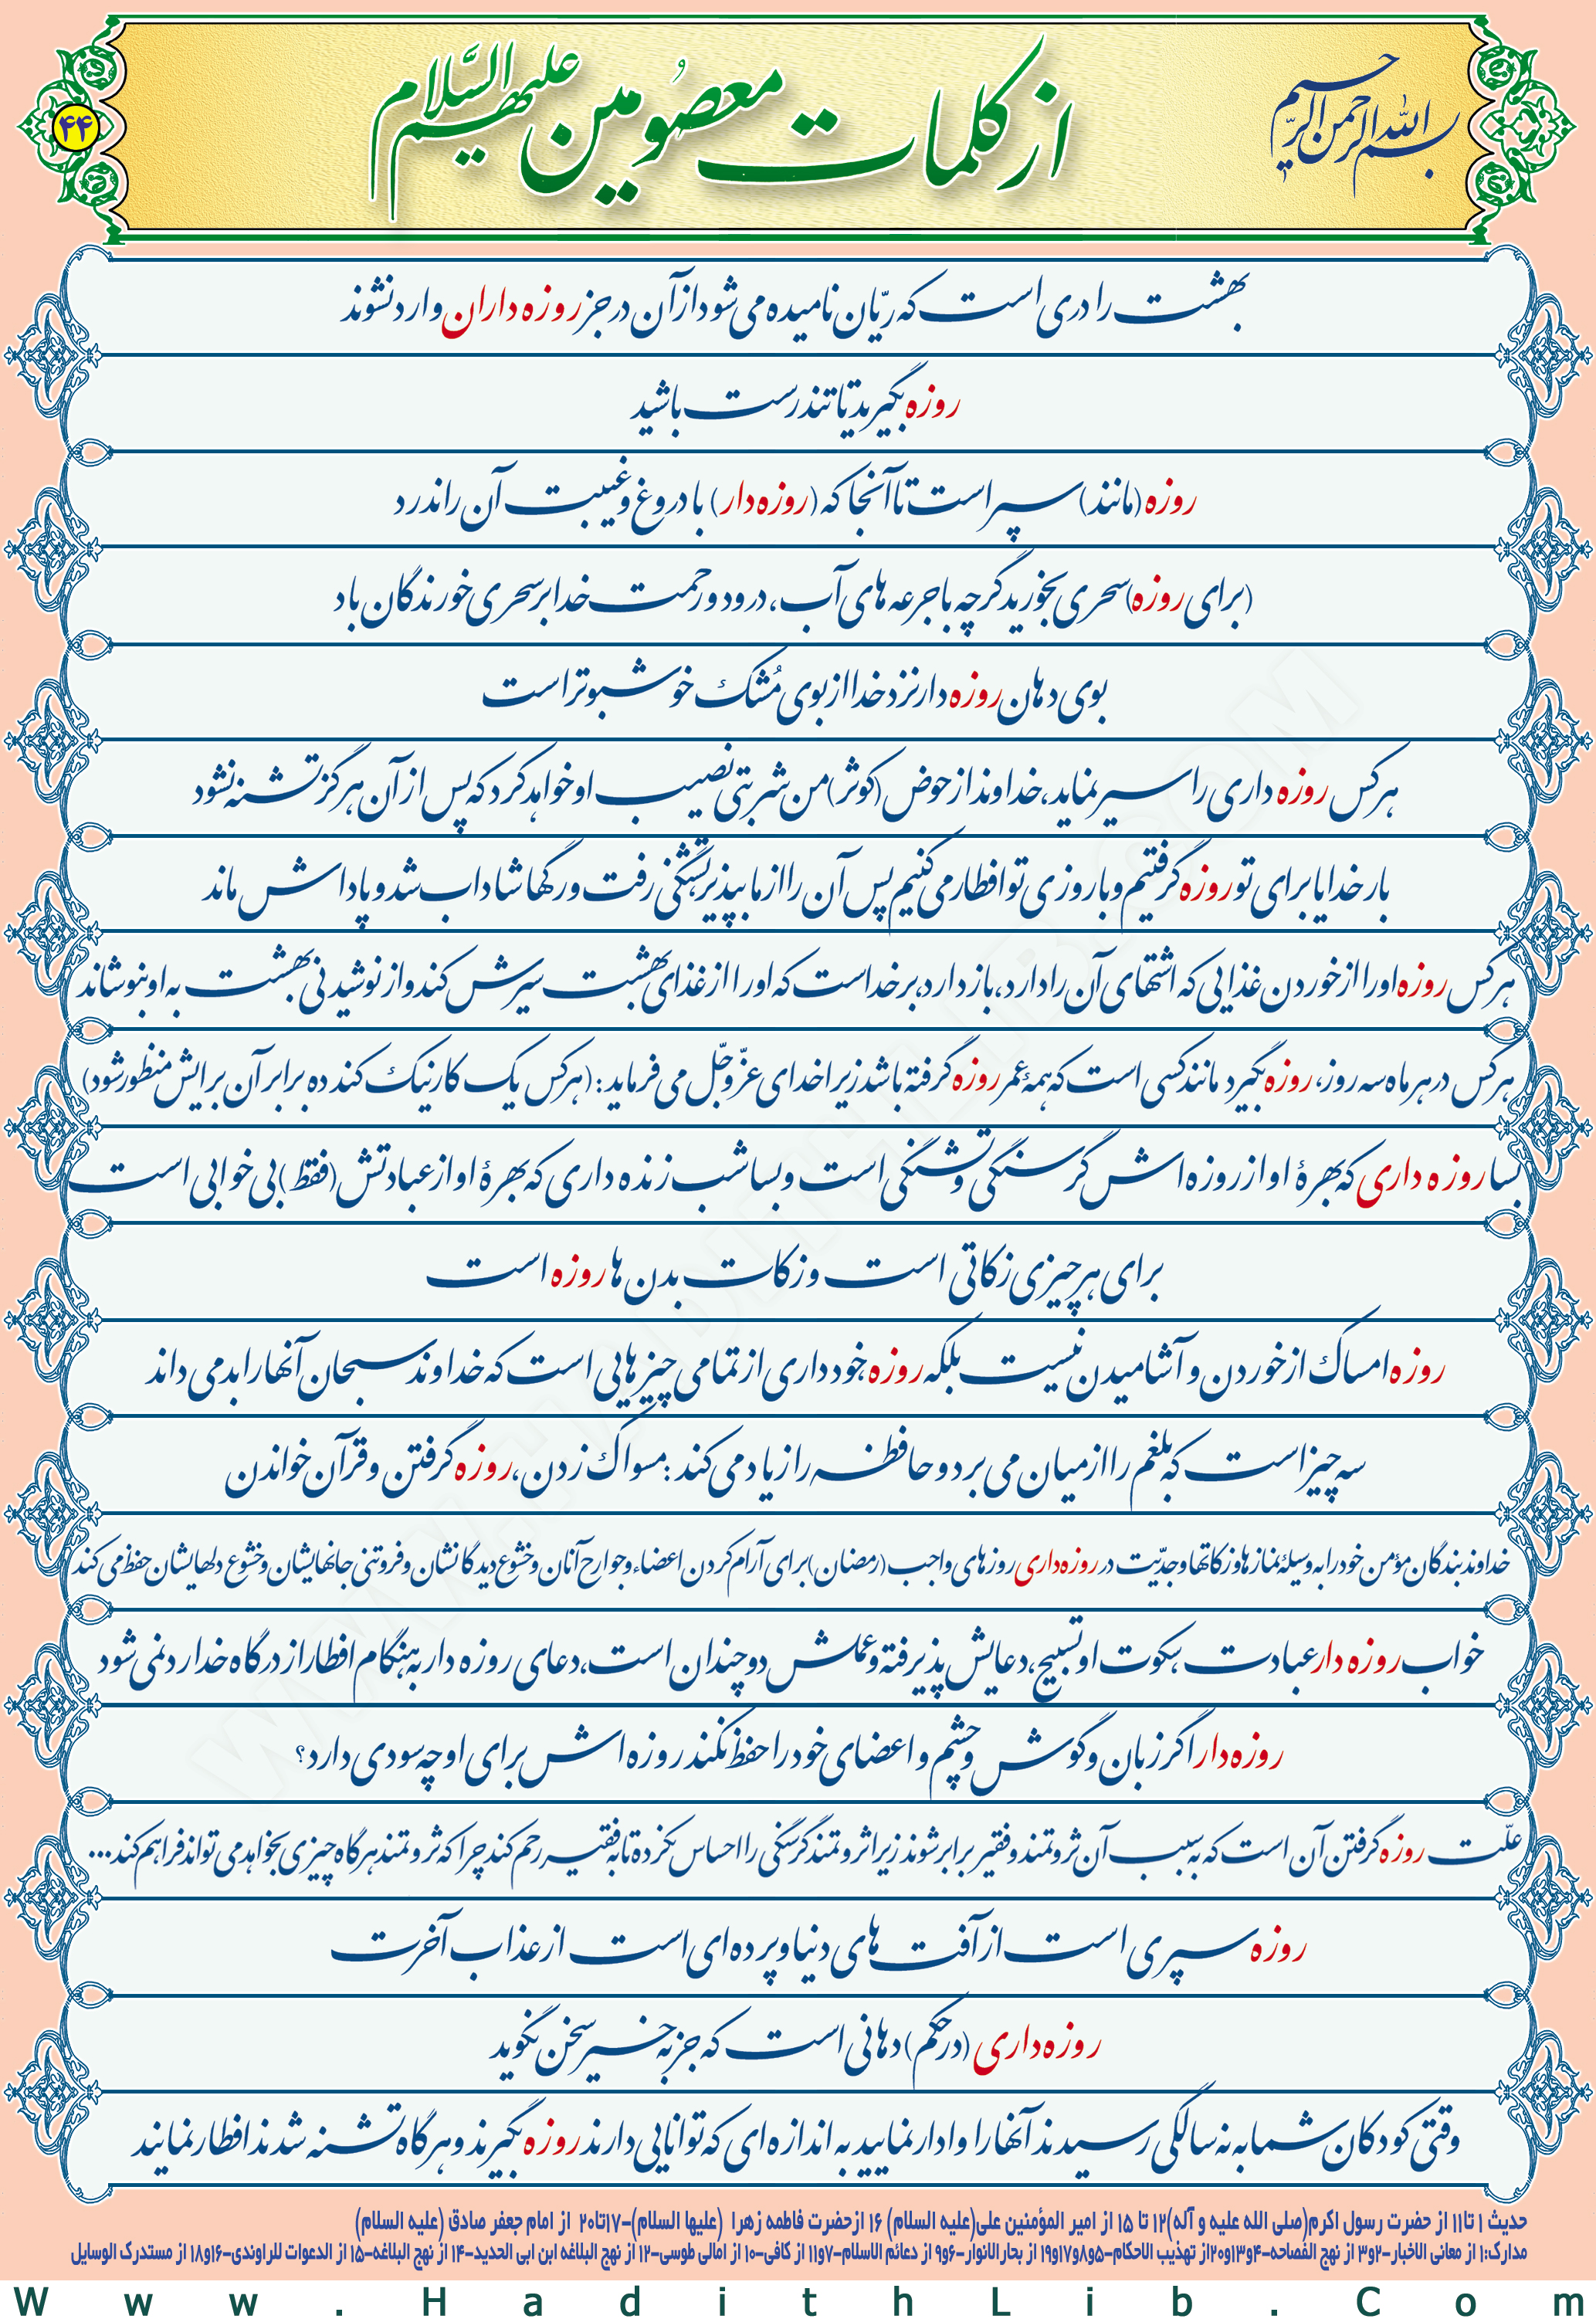 بسم الله الرحمن الرحیم
از کلمات معصومین علیهم السلام
۴۴
بهشت را دری است که ریّان نامیده می شود از آن در جز روزه داران وارد نشوند
روزه بگیرید تا تندرست باشید
روزه (مانند) سپر است تا آنجا که (روزه دار) با دروغ و غیبت آن را ندرد
(برای روزه) سحری بخورید گرچه با جرعه های آب، درود و رحمت خدا بر سحری خورندگان باد
بوی دهان روزه دار نزد خدا از بوی مُشک خوشبوتر است
هر کس روزه داری را سیر نماید، خداوند از حوض (کوثر) من شربتی نصیب او خواهد کرد که پس از آن هرگز تشنه نشود
بار خدایا برای تو روزه گرفتیم و با روزی تو افطار می کنیم پس آن را از ما بپذیر تشنگی رفت و رگها شاداب شد و پاداش ماند
هر کس روزه او را از خوردن غذایی که اشتهای آن را دارد، باز دارد، بر خداست که او را از غذای بهشت سیرش کند و از نوشیدنی بهشت به او بنوشاند
هر کس در هر ماه سه روز، روزه بگیرد مانند کسی است که همۀ عمر روزه گرفته باشد زیرا خدای عزّوجّل می فرماید: (هر کس یک کار نیک کند ده برابر آن برایش منظور شود)
بسا روزه داری که بهرۀ او از روزه اش گرسنگی و تشنگی است و بسا شب زنده داری که بهرۀ او از عبادتش (فقط) بی خوابی است
برای هر چیزی زکاتی است و زکات بدن ها روزه است
روزه امساک از خوردن و آشامیدن نیست بلکه روزه خودداری از تمامی چیزهایی است که خداوند سبحان آنها را بد می داند
سه چیز است که بلغم را از میان می برد و حافظه را زیاد می کند: مسواک زدن، روزه گرفتن و قرآن خواندن
خداوند بندگان مؤمن خود را به وسیلۀ نمازها و زکاتها و جدّیت در روزه داری روزهای واجب (رمضان) برای آرام کردن اعضاء و جوارح آنان و خشوع دیدگانشان و فروتنی جانهایشان و خشوع دلهایشان حفظ می کند
خواب روزه دار عبادت، سکوت او تسبیح، دعایش پذیرفته و عملش دوچندان است، دعای روزه دار به هنگام افطار از درگاه خدا رد نمی شود
روزه دار اگر زبان و گوش و چشم و اعضای خود را حفظ نکند روزه اش برای او چه سودی دارد؟
علّت روزه گرفتن آن است که به سبب آن ثروتمند و فقیر برابر شوند زیرا ثروتمند گرسنگی را احساس نکرده تا به فقیر رحم کند چرا که ثروتمند هرگاه چیزی بخواهد می تواند فراهم کند...
روزه سپری است از آفت های دنیا و پرده ای است از عذاب آخرت
روزه داری (در حکم) دهانی است که جز به خیر سخن نگوید
وقتی کودکان شما به نه سالگی رسیدند آنها را وادار نمایید به اندازه ای که توانایی دارند روزه بگیرند و هرگاه تشنه شدند افطار نمایند
حدیث ۱ تا۱۱ از حضرت رسول اکرم(صلی الله علیه و آله)۱۲ تا ۱۵ از امیر المؤمنین علی(علیه السلام) ۱۶ ازحضرت فاطمه زهرا (علیها السلام)-۱۷تا۲۰ از امام جعفر صادق (علیه السلام)
مدارک:۱ از معانی الاخبار-۲و۳ از نهج الفصاحه-۴و۱۳و۲۰از تهذیب الاحکام-۵و۸و۱۷و۱۹ از بحارالانوار-۶و۹ از دعائم الاسلام-۷و۱۱ از کافی-۱۰ از امالی طوسی-۱۲ از نهج البلاغه ابن ابی الحدید-۱۴ از نهج البلاغه-۱۵ از الدعوات للراوندی-۱۶و۱۸ از مستدرک الوسایل
Www.HadithLib.Com